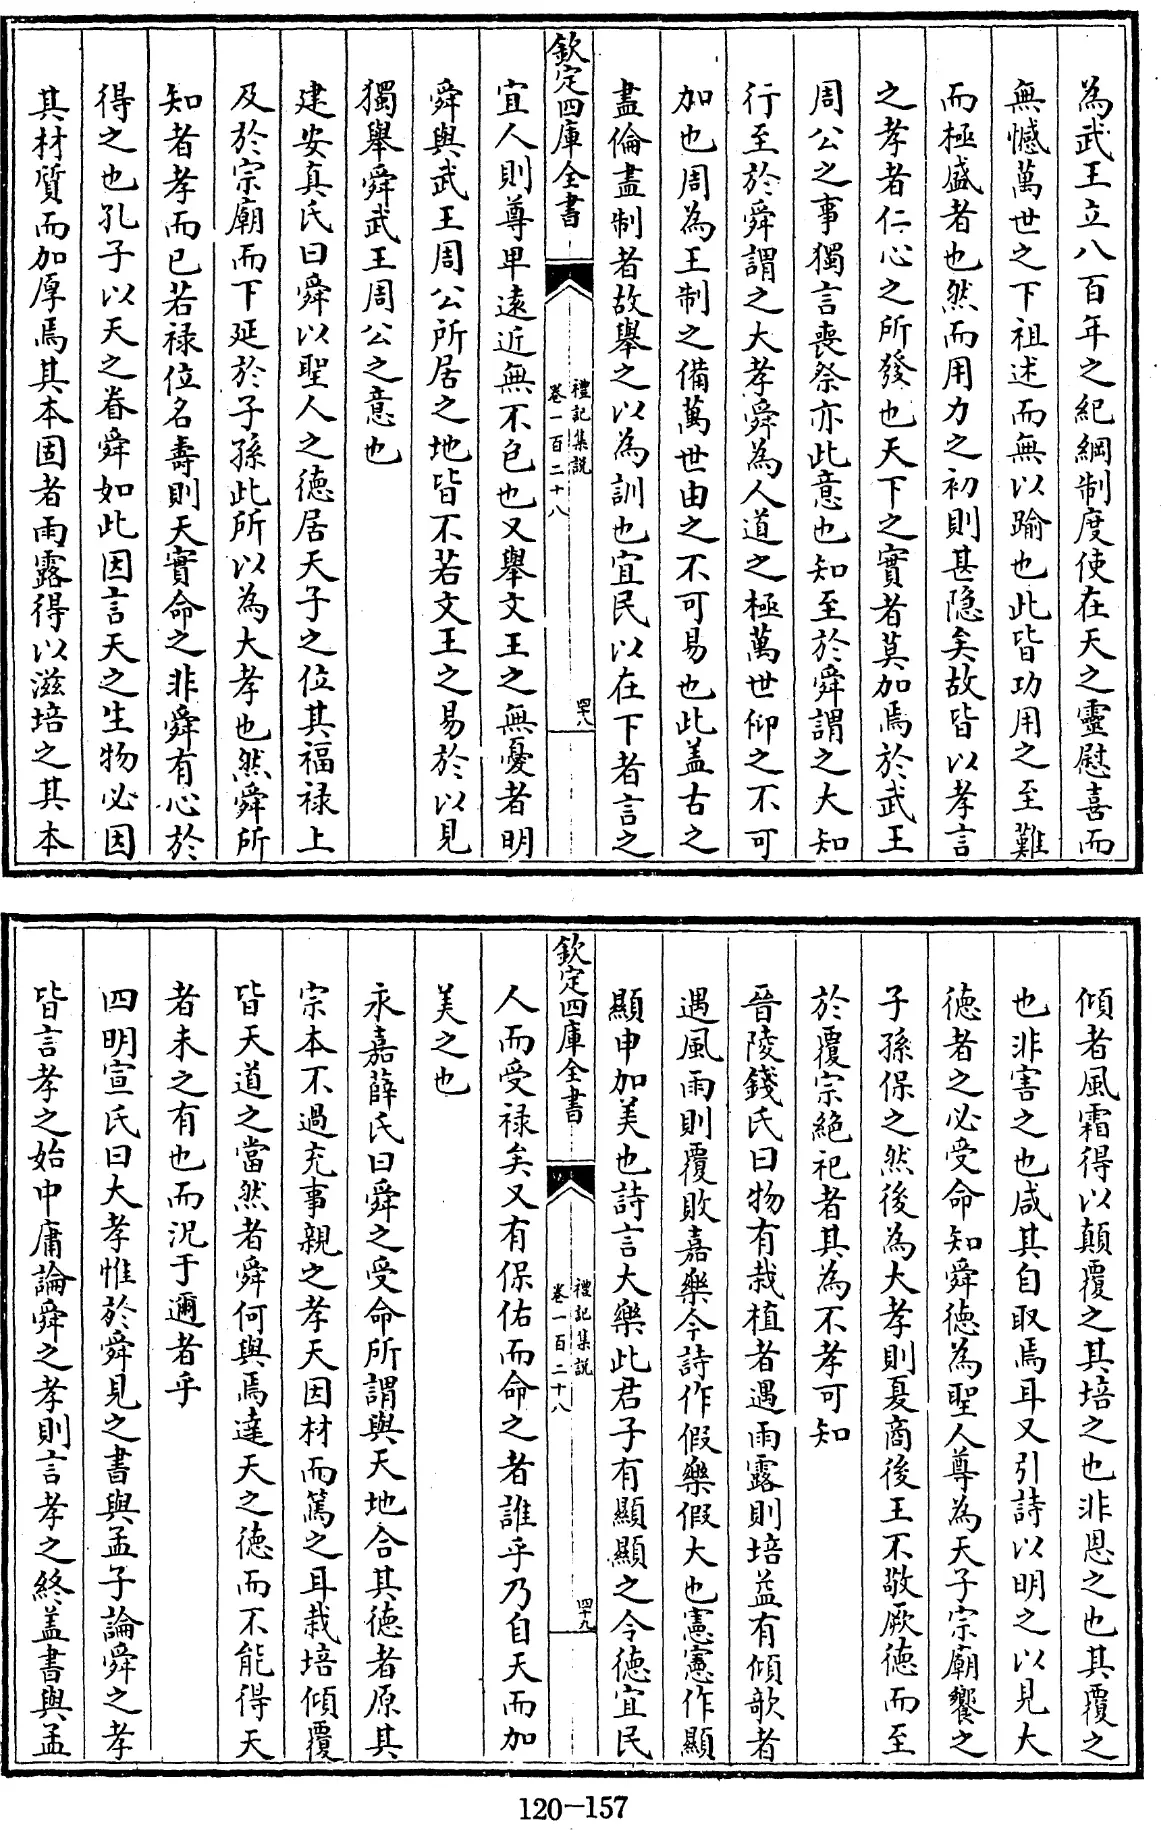 為武王立八百年之紀綱制度使在天之靈慰喜而
無憾萬世之下祖述而無以踰也此皆功用之至難
而極盛者也然而用力之初則甚隱矣故皆以孝言
之孝者仁心之所發也天下之實者莫加焉於武王
周公之事獨言喪祭亦此意也知至於舜謂之大知
行至於舜謂之大孝舜為人道之極萬世仰之不可
加也周為王制之備萬世由之不可易也此盖古之
盡倫盡制者故舉之以為訓也宜民以在下者言之
欽定四庫全書
禮記集説
卷一百二十八
四十八
宜人則尊卑遠近無不包也又舉文王之無憂者明
舜與武王周公所居之地皆不若文王之易於以見
獨舉舜武王周公之意也
建安真氏曰舜以聖人之德居天子之位其福禄上
及於宗廟而下延於子孫此所以為大孝也然舜所
知者孝而已若禄位名壽則天實命之非舜有心於
得之也孔子以天之眷舜如此因言天之生物必因
其材質而加厚焉其本固者雨露得以滋培之其本
傾者風霜得以顛覆之其培之也非恩之也其覆之
也非害之也咸其自取焉耳又引詩以明之以見大
德者之必受命知舜德為聖人尊為天子宗廟饗之
子孫保之然後為大孝則夏商後王不敬厥德而至
於覆宗絶祀者其為不孝可知
晉陵錢氏曰物有栽植者遇雨露則培益有傾欹者
遇風雨則覆敗嘉樂今詩作假樂假大也憲憲作顯
顯申加美也詩言大樂此君子有顯顯之令德宜民
欽定四庫全書
禮記集説
卷一百二十八
四十九
人而受禄矣又有保佑而命之者誰乎乃自天而加
美之也
永嘉薛氏曰舜之受命所謂與天地合其德者原其
宗本不過充事親之孝天因材而篤之耳栽培傾覆
皆天道之當然者舜何與焉達天之德而不能得天
者未之有也而況于邇者乎
四明宣氏曰大孝惟於舜見之書與孟子論舜之孝
皆言孝之始中庸論舜之孝則言孝之終盖書與孟
120-157